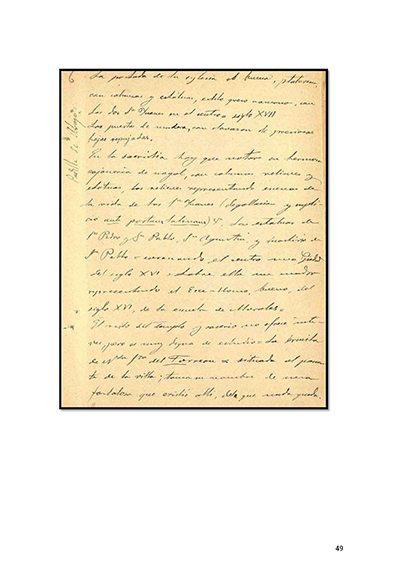 6 La portada de la iglesia es buena, plateresca,
con columnas y estatuas, estilo greco romano, con
los dos Stos Juanes en el centro = siglo XVII
Las puertas de madera, con clavazon de preciosas
hojas repujadas.
En la sacristia hay que notar su hermosa
cajoneria de nogal, con columnas, relieves y
estatuas, los relieves representando escenas de
la vida de los Stos Juanes (degollacion y
ante portam latinam) Las estatuas de
Sn Pedro y Sn Pablo, Sn Agustin, y martirio de
Sn Pablo = coronando el centro una Piedad
del siglo XVI = Sobre ella un cuadro
representando el Ecce-Homo, bueno, del
siglo XVI, de la escuela de Morales =
El resto del templo y sacristia no ofrece
pero es muy digna de estudio = La ermita
de Ntra Sra del Torreon es situada al
de la villa; toma su nombre de una
fortaleza que existió allí, de la que nada queda.
Padilla de Abajo
49